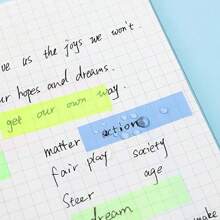 us the joys we won't
our hopes and dreams.
get our own way.
matter action
fair play society
Steer age
dream